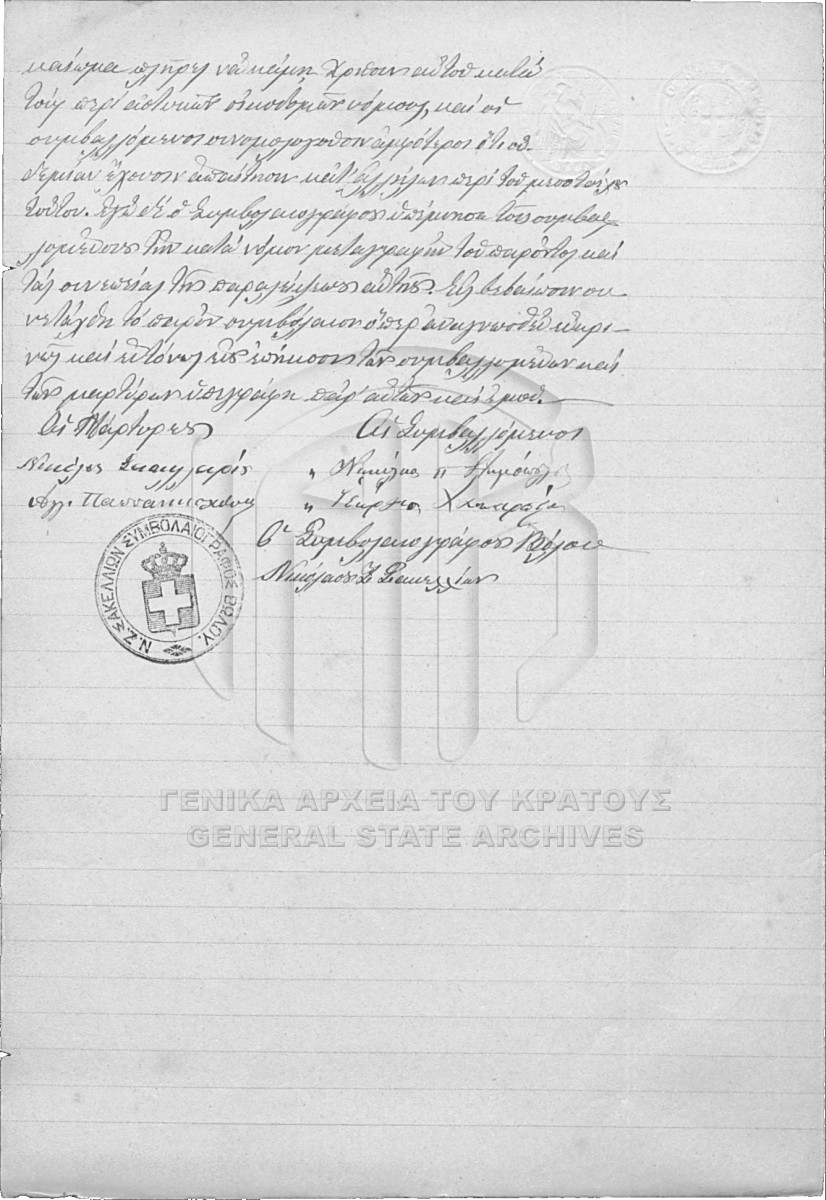 καίωμα πλῆρες νὰ κάμῃ χρῆσιν αὐτοῦ κατὰ
τοὺς περὶ ἀστικῶν οἰκοδομῶν νόμους, καὶ οἱ
συμβαλλόμενοι συνομολογοῦσιν ἀμφότεροι ὅτι οὐ-
δεμίαν ἔχουσιν ἀπαίτησιν κατ' ἀλλήλων περὶ τοῦ μεσοτοίχου
τούτου. Ἐγὼ δὲ ὁ Συμβολαιογράφος ὑπέμνησα τοῖς συμβαλ-
λομένοις τὴν κατὰ νόμον μεταγραφὴν τοῦ παρόντος καὶ
τὰς συνεπείας τῆς παραλείψεως αὐτῆς. Εἰς βεβαίωσιν συ-
νετάχθη τὸ παρὸν συμβόλαιον ὅπερ ἀναγνωσθὲν εὐκρι-
νῶς καὶ εὐτόνως εἰς ἐπήκοον τῶν συμβαλλομένων καὶ
τῶν μαρτύρων ὑπεγράφη παρ' αὐτῶν καὶ ἐμοῦ.
Οἱ Μάρτυρες Οἱ Συμβαλλόμενοι
Νικόλαος
Γεώργιος
Ὁ Συμβολαιογράφος Βόλου
Νικόλαος Ζ Σακελλίων
Ν. Ζ. ΣΑΚΕΛΛΙΩΝ ΣΥΜΒΟΛΑΙΟΓΡΑΦΟΣ ΒΩΛΟΥ.
ΓΕΝΙΚΑ ΑΡΧΕΙΑ ΤΟΥ ΚΡΑΤΟΥΣ
GENERAL STATE ARCHIVES